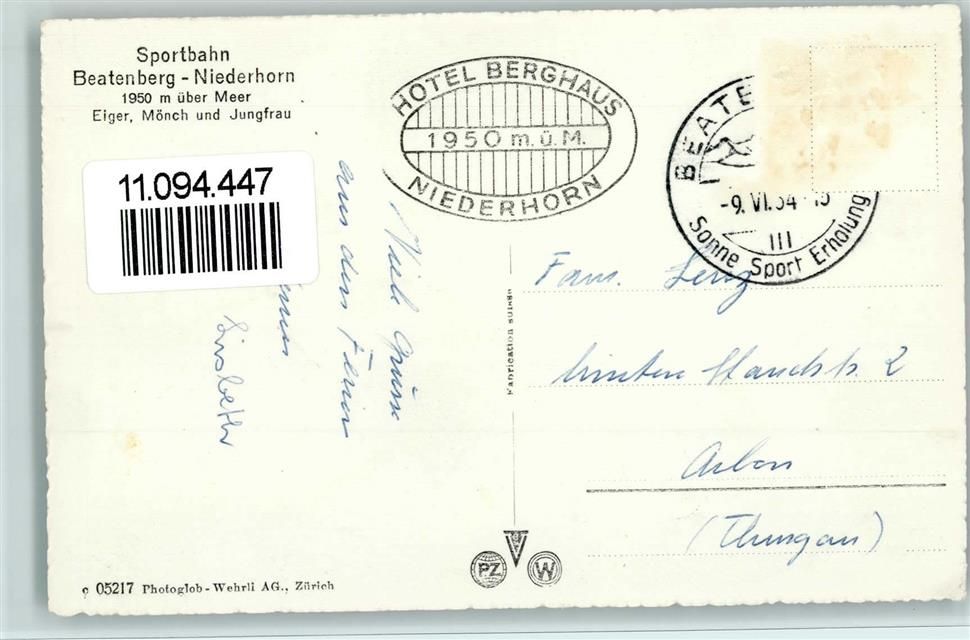 Sportbahn
Beatenberg - Niederhorn
1950 m über Meer
Eiger, Mönch und Jungfrau
11.094.447
HOTEL BERGHAUS
1950 m.ü.M.
NIEDERHORN
BEATE
-9. VI. 54
III
Sonne Sport Erholung
Viele Grüsse
aus den Ferien
Lisbeth
Fam. Lenz
hintere
2
Arbon
(Thurgau)
Fabrication suisse
PZ
W
c 05217 Photoglob-Wehrli AG., Zürich